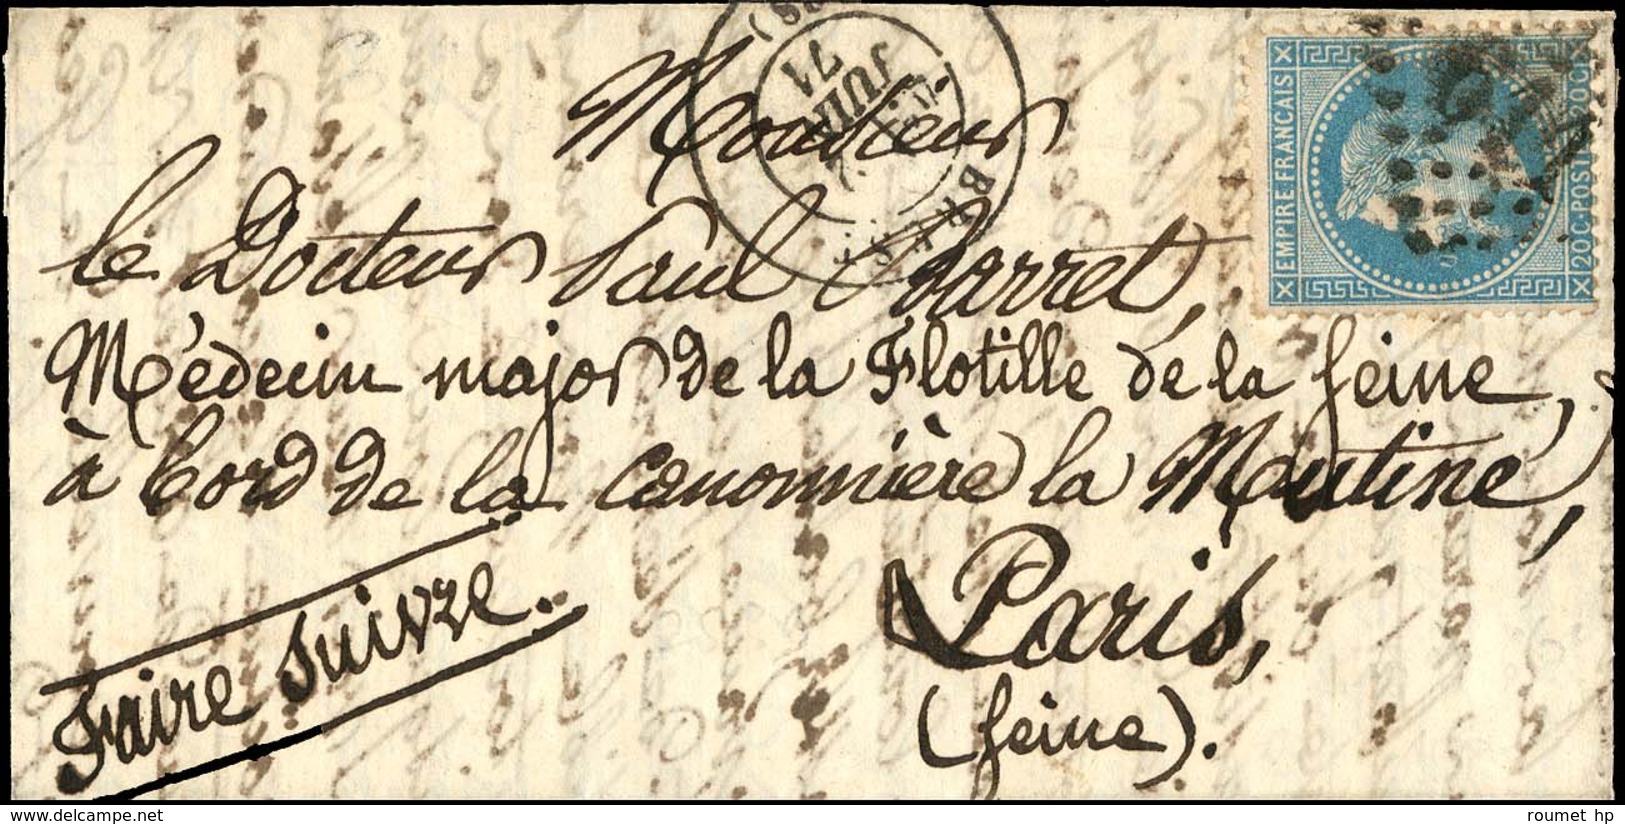 Monsieur
le Docteur Paul Barret,
Médecin major de la Flotille de la Seine,
à bord de la canonnière la Mutine,
Paris,
(Seine).
Faire suivre.
BREST
JUIL
71
EMPIRE FRANCAIS
20C POSTES 20C
roumet hp